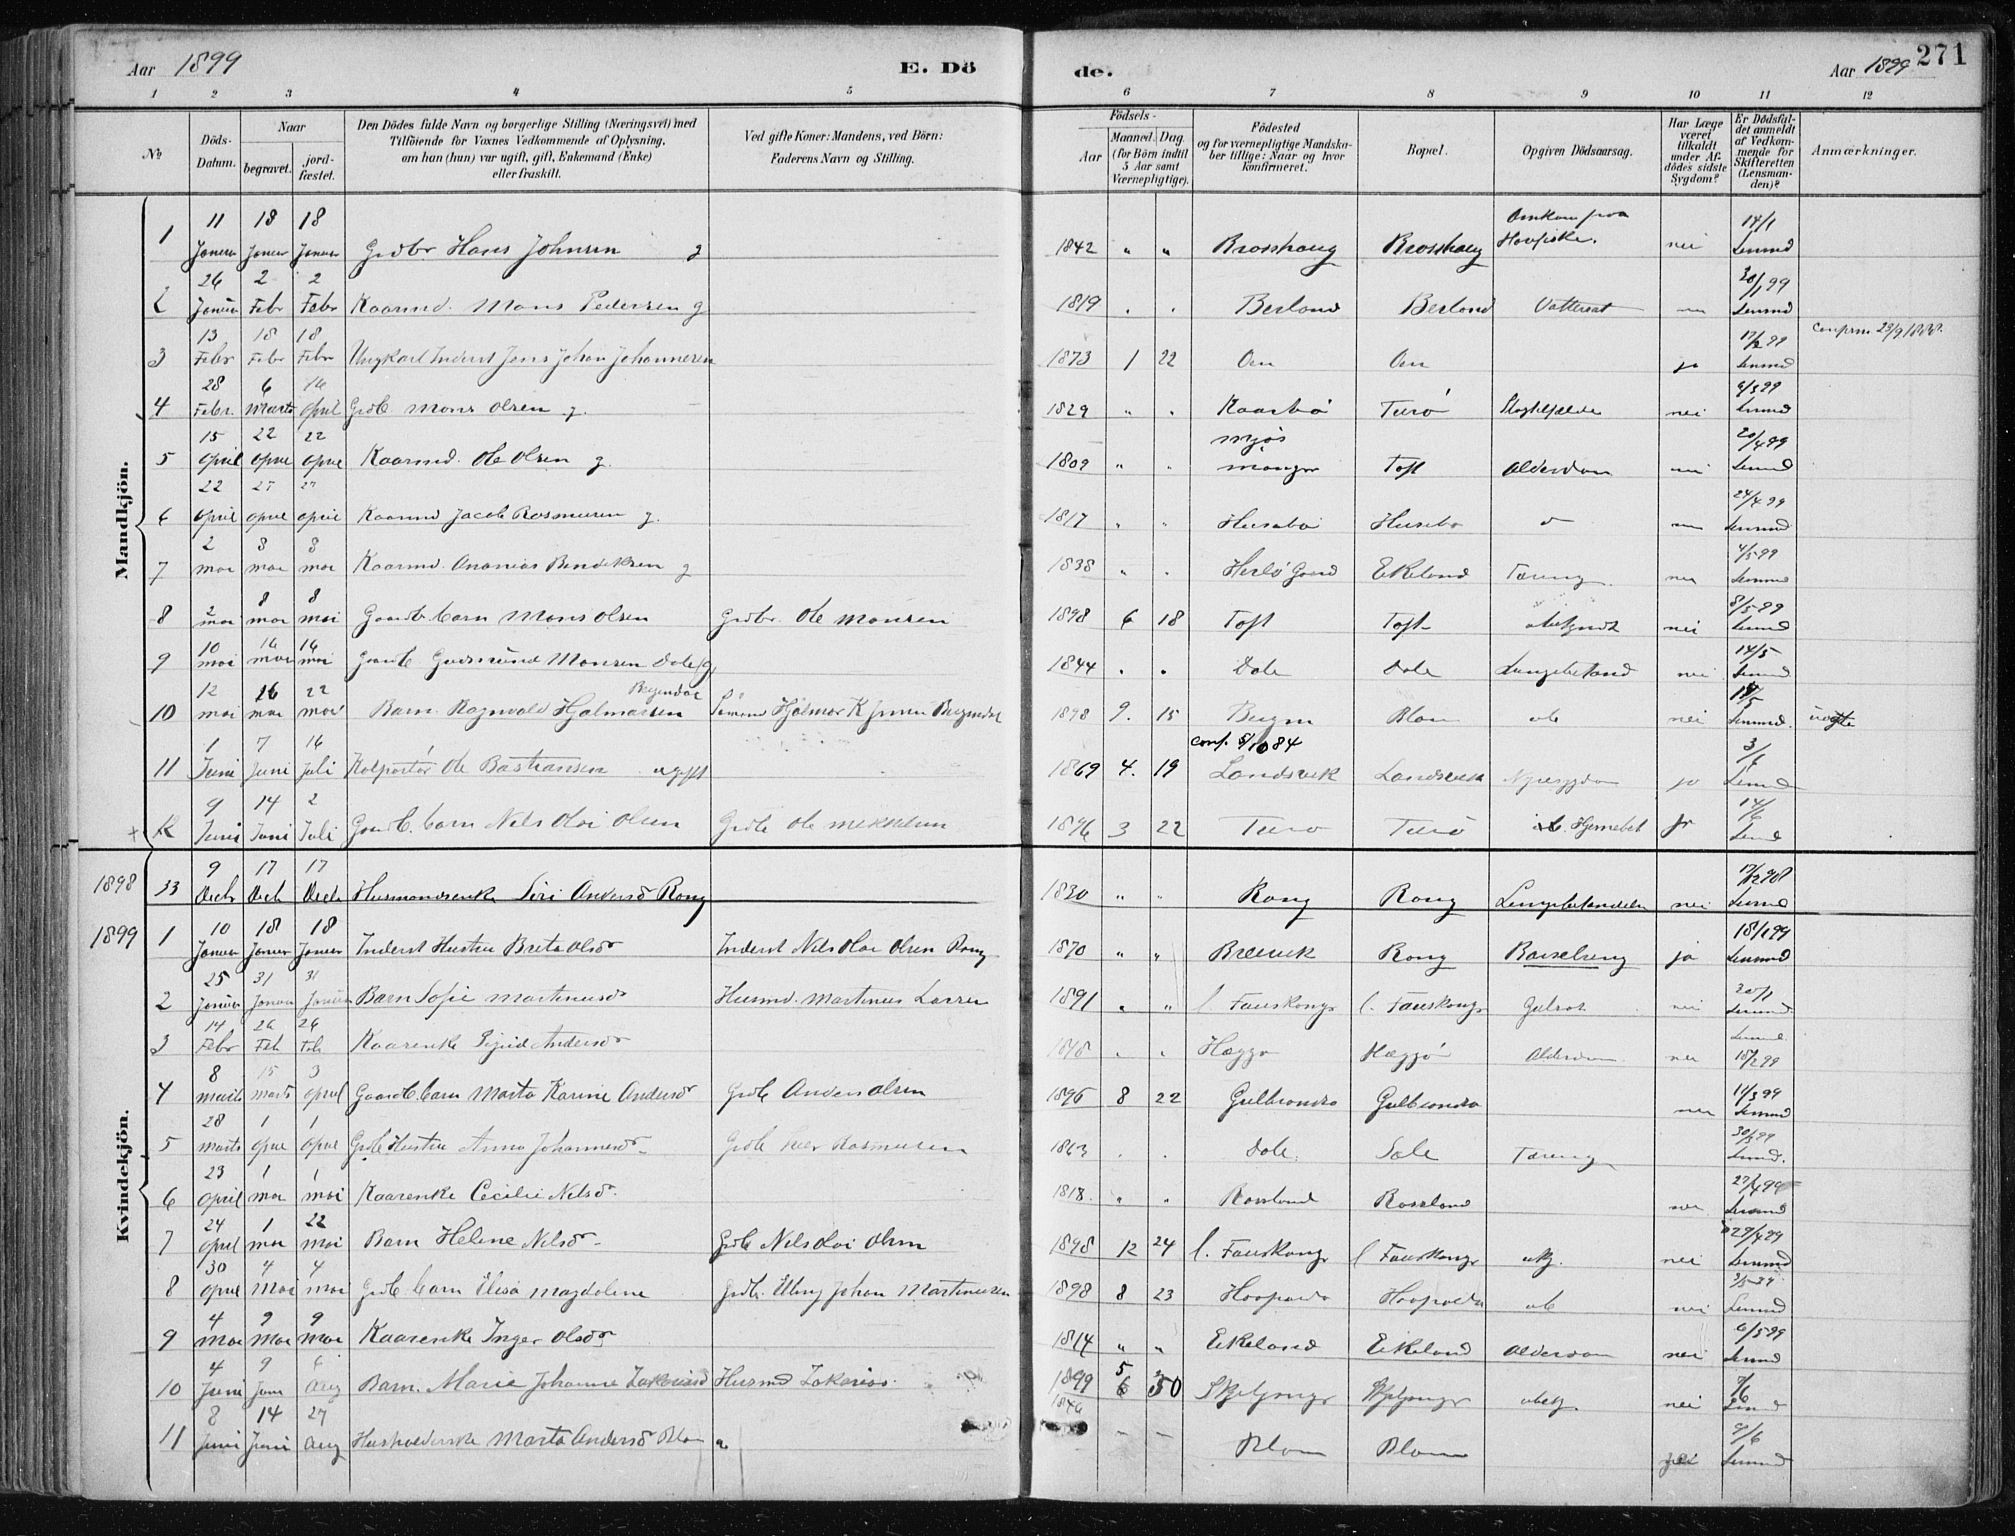 Aar 1899 E. Dö de. Aar 1899 271
1 2 3 4 5 6 7 8 9 10 11 12
№ Döds-Datum. Naar begravet. jordfæstet. Den Dödes fulde Navn og borgerlige Stilling (Næringsvei) med Tilföiende for Voxnes Vedkommende af Oplysning, om han (hun) var ugift, gift, Enkemand (Enke) eller fraskilt. Ved gifte Koner: Mandens, ved Börn: Faderens Navn og Stilling. Födsels- Aar Maaned. Dag. (for Börn indtil 5 Aar samt Værnepligtige). Födested og for værnepligtige Mandskaber tillige: Naar og hvor konfirmeret. Bopæl. Opgiven Dödsaarsag. Har Læge været tilkaldt under Afdödes sidste Sygdom? Er Dödsfaldet anmeldt af Vedkommende for Skifteretten (Lensmanden)? Anmærkninger.
Mandkjön.
1 11 Januar 18 Januar 18 Januar Grdbr Hans Johnsen g 1842 " " Brosshaug Brosshaug Omkom paa Havfiske. nei 14/1 Lensmd
2 26 Januar 2 Febr 2 Febr Kaarmd. Mons Pedersen g 1819 . . Berland Berland Vattersot Lensmd
3 13 Febr 18 Febr 18 Febr Ungkarl Inderst Jens Johan Johannesen 1873 1 22 Oen Oen ja 17/2 99 Lensmd
4 28 Febr. 6 Marts 16 April Grdb Mons Olsen g. 1829 " . Kaarbø Turø nei 6/3 99 Lensmd
5 15 April 22 April 22 April Kaarmd. Ole Olsen g. 1809 " . Mjøs Manger Toft Alderdom nei 20/4 99 Lensmd
6 22 April 27 April 27 April Kaarmd Jacob Rasmusen g. 1817 " . Husebø Husebø 24/4 99 Lensmd
7 2 Mai 8 Mai 8 Mai Kaarmd. Ananias Bendiksen g 1838 " . Herlø Gaard Eikeland Tæring nei 4/5 99 Lensmd
8 2 Mai 8 Mai 8 Mai Gaardb barn Mons Olsen Grdbr. Ole Monsen 1898 6 18 Toft Toft ubekjendt nei 8/5 99 Lensmd
9 10 Mai 16 Mai 16 Mai Gaardb Gudmund Monsen Dale g 1844 . . Dale Dale Lungebetænd nei 14/5 Lensmd
10 12 Mai 26 Mai 22 Mai Barn. Ragnvald Hjalmarsen 1898 9. 15 Bergen Blom ub nei Lensmd. uægte
11 1 Juni 7 Juni 16 Juli Kolportør Ole Bastiansen ugift 1869 4. 19 conf. 5/10 84 Landsvik Landsvik Nyresygdom ja 3/6 Lensmd
12 9 Juni 14 Juni 2 Juli Gaardb. barn Nils Olai Olsen Grdb Ole Mikkelsen 1896 3 22 Turø Turø Hjernebet ja 14/6 Lensmd
1898 33 9 Decb 17 Decb 17 Decb Husmandsenke Siri Andersd Rong 1830 " " Rong Rong Lungebetændelse nei 17/12 98 Lensmd
Kvindekjön.
1899 1 10 Januar 18 Januar 18 Januar Inderst Hustru Brita Olsdr Inderst Nils Olai Olsen Rong 1870 " " Breivik Rong Barselseng ja 18/1 99 Lensmd
2 25 Januar 31 Januar 31 Januar Barn Sofie Martinusdr Husmd. Martinus Larsen 1891 " " l. Fauskanger l. Fauskanger Gulsot nei Lensmd
3 14 Febr 26 Feb 26 Feb Kaarenke Sigrid Andersdr . . Hæggø Hæggø Alderdom nei Lensmd 18/2 99
4 8 Marts 15 Marts 3 April Gaardb. barn Marta Karine Andersdr Grdb Anders Olsen 1896 8 22 Gulbrandsø Gulbrandsø nei 11/3 99 Lensmd
5 28 Marts 1 April 1 April Grdb Hustru Anna Johannesdr Grdb Peer Rasmusen 1863 . . Dale Dale Tæring 30/3 99 Lensmd.
6 23 April 1 Mai 1 Mai Kaarenke Cecilie Nilsdr. 1818. " " Rossland Rossland nei 27/4 99 Lensmd
7 24 April 1 Mai 22 Mai Barn Helene Nilsdr Grdb Nils Olai Olsen 1898 12 24 l. Fauskanger l Fauskanger ubkj. nei 29/4 99 Lensmd
8 30 April 4 Mai 4 Mai Grdb. barn Elisa Magdalene Grdb. Elling Johan Martinussen 1898 8 23 Hoopsøen Hoopsøen ub nei Lensmd
9 4 Mai 9 Mai 9 Mai Kaarenke Inger Olsdr 1814 " " Eikeland Eikeland Alderdom nei 6/5 99 Lensmd
10 4 Juni 9 Juni 6 Aug Barn. Marie Johanne Zakariasd Husmd Zakarias 1899 5 30 Skjeljanger Skjeljanger ubekj. nei 7/6 Lensmd
11 8 Juni 14 Juni 27 Aug Husholderske Marta Andersd Blom 1846 – – Blom Blom nei 9/6 Lensmd